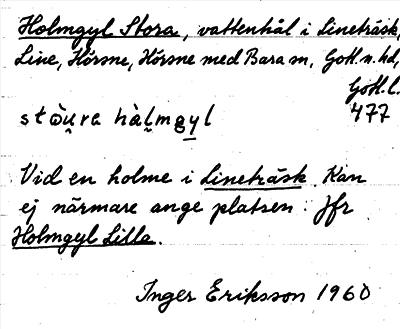 Holmgyl Stora, vattenhål i Lineträsk,
Line, Hörsne, Hörsne med Bara sn, Gotl. n. hd,
Gotl. l.
stòu̯ra hàlmgyl 477
Vid en holme i Lineträsk. Kan
ej närmare ange platsen. Jfr
Holmgyl Lilla.
Inger Eriksson 1960